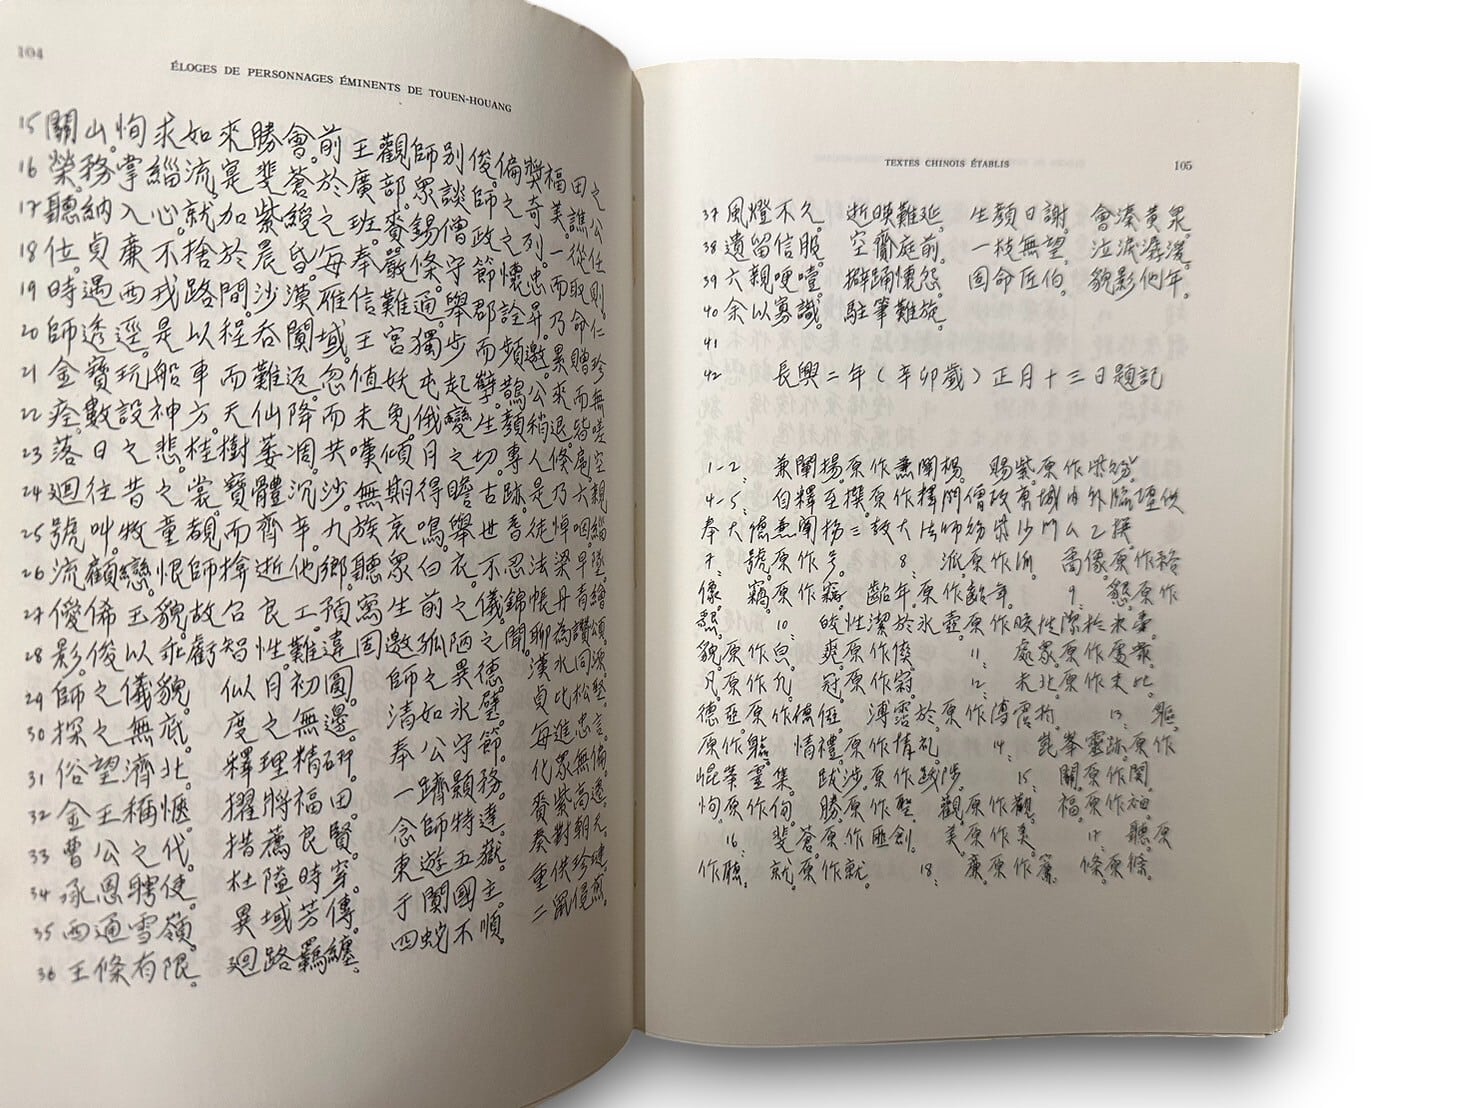 104
ÉLOGES DE PERSONNAGES ÉMINENTS DE TOUEN-HOUANG
15 關山。恂求如來勝會。前王觀師別俊。偏獎福田之
16 榮。務掌緇流。寔斐蒼於廣部。眾談師之奇美。譙公
17 聽納入心。就加紫綬之班。賚錫僧政之列。一從任
18 位。貞廉不捨於晨昏。每奉嚴條。守節懷忠。而取則。
19 時遇西戎路間。沙漠雁信難通。舉郡詮昇。乃命仁
20 師透逕。是以程吞闐域。王宮獨步而頻邀。累贈珍
21 金寶玩。船車而難返。忽值妖屯起孽。鵲公來而無
22 痊。數設神方。天仙降而未免。俄變生顏稍退。皆嗟
23 落日之悲。桂樹萎凋。共嘆傾月之切。專人倏届。空
24 迴往昔之裳。寶體沉沙。無期得瞻古跡。是乃六親
25 號叫。牧童覩而齊辛。九族哀鳴。舉世音徒悼咽。緇
26 流顧戀。恨師捨逝他鄉。聽眾白衣。不忍法梁早墜。
27 僾俙玉貌。故召良工。預寫生前之儀。錦帳丹青繪
28 影。俊以乖虧智性。難違固邀。孤陋之聞。聊為讚頌。
29 師之儀貌。 似月初圓。 師之異德。 漢水同淚。
30 探之無底。 度之無邊。 清如氷璧。 貞比松堅。
31 俗望濟北。 釋理精研。 奉公守節。 每進忠言。
32 金王稱愜。 擢將福田。 一躋顯務。 化眾無偏。
33 曹公之代。 措薦良賢。 念師特達。 賚紫高遷。
34 承恩聘使。 杜隘時穿。 東遊五嶽。 奏對朝元。
35 西通雪嶺。 異域芳傳。 于闐國主。 重供珍璉。
36 王條有限。 迴路羈纏。 四蛇不順。 二鼠侵煎。
TEXTES CHINOIS ÉTABLIS
105
37 風燈不久。 逝暎難延。 生顏日謝。 會湊黃泉。
38 遺留信服。 空齎庭前。 一枝無望。 泣淚潺湲。
39 六親哽噎。 擗踊懷怨。 固命匠伯。 貌影他年。
40 余以寡識。 駐筆難旋。
41
42 長興二年(辛卯歲)正月十三日題記
1-2. 兼闡揚。原作兼闡楊。 賜紫。原作
4-5. 自釋至撰。原作釋門僧政京城內外臨壇供
奉大德兼闡楊三教大法師賜紫沙門ム乙撰。
7. 號。原作号。 8. 派。原作 。 喬像。原作
像。 竊。原作 。 齠年。原作 年。 9. 懇。原作
。 10. 皎性潔於氷壺。原作 性潔於氷 。
貌。原作皃。 爽。原作 。 11. 處家。原作
凡。原作九。 冠。原作 。 12. 未北。原作未比。
德亞。原作 。 溥霑於。原作 。 13. 軀。
原作 。 情禮。原作情礼。 14. 崑峯靈跡。原作
崐峯靈集。 跋涉。原作 。 15. 關。原作関。
恂。原作 。 勝。原作 。 觀。原作 。 福。原作 。
16. 斐蒼。原作匪創。 美。原作 。 17. 聽。原
作 。 就。原作 。 18. 廉。原作 。 條。原 。